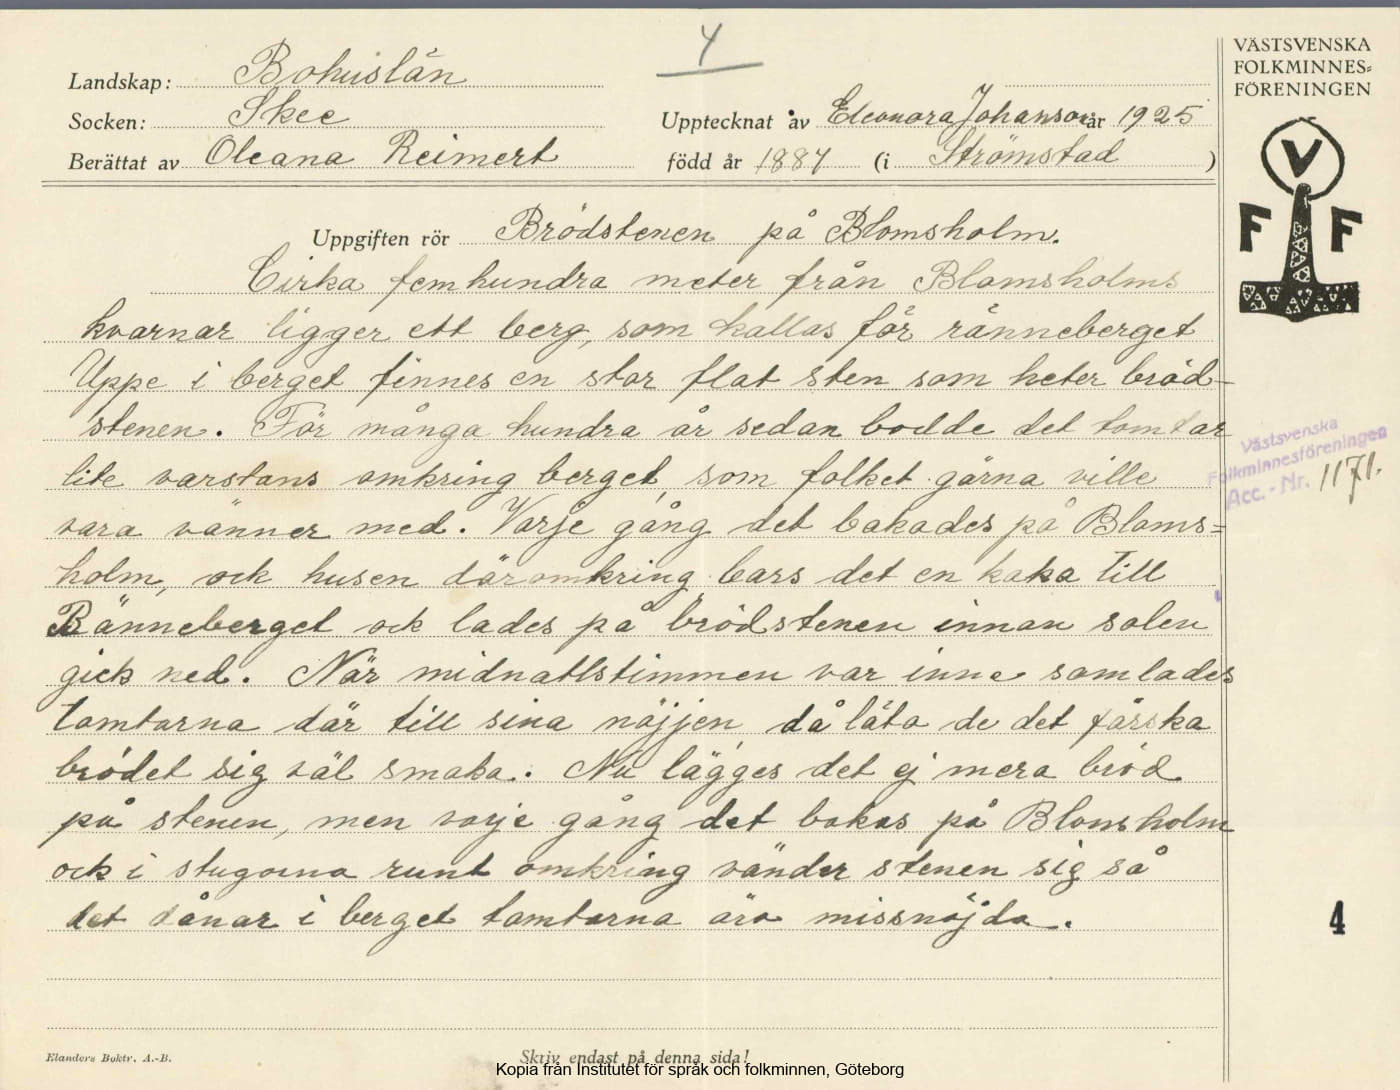 4
Landskap: Bohuslän
Socken: Skee
Upptecknat av Eleonora Johanson år 1925
Berättat av Oleana Reimert
född år 1887 (i Strömstad )
VÄSTSVENSKA
FOLKMINNES=
FÖRENINGEN
V
F F
Uppgiften rör Brödstenen på Blomsholm.
Cirka femhundra meter från Blomsholms
kvarnar ligger ett berg, som kallas för ränneberget
Uppe i berget finnes en stor flat sten som heter bröd-
stenen. För många hundra år sedan bodde det tomtar
lite varstans omkring berget, som folket gärna ville
vara vänner med. Varje gång det bakades på Bloms=
holm, ock husen däromkring bars det en kaka till
Ränneberget ock lades på brödstenen innan solen
gick ned. När midnattstimmen var inne samlades
tomtarna där till sina nöjjen då låto de det färska
brödet sig väl smaka. Nu lägges det ej mera bröd
på stenen, men varje gång det bakas på Blomsholm
ock i stugorna runt omkring vänder stenen sig så
det dånar i berget tomtarna äro missnöjda.
Västsvenska
Folkminnesföreningen
Acc.-Nr. 1171.
4
Elanders Boktr. A.-B.
Skriv endast på denna sida!
Kopia från Institutet för språk och folkminnen, Göteborg